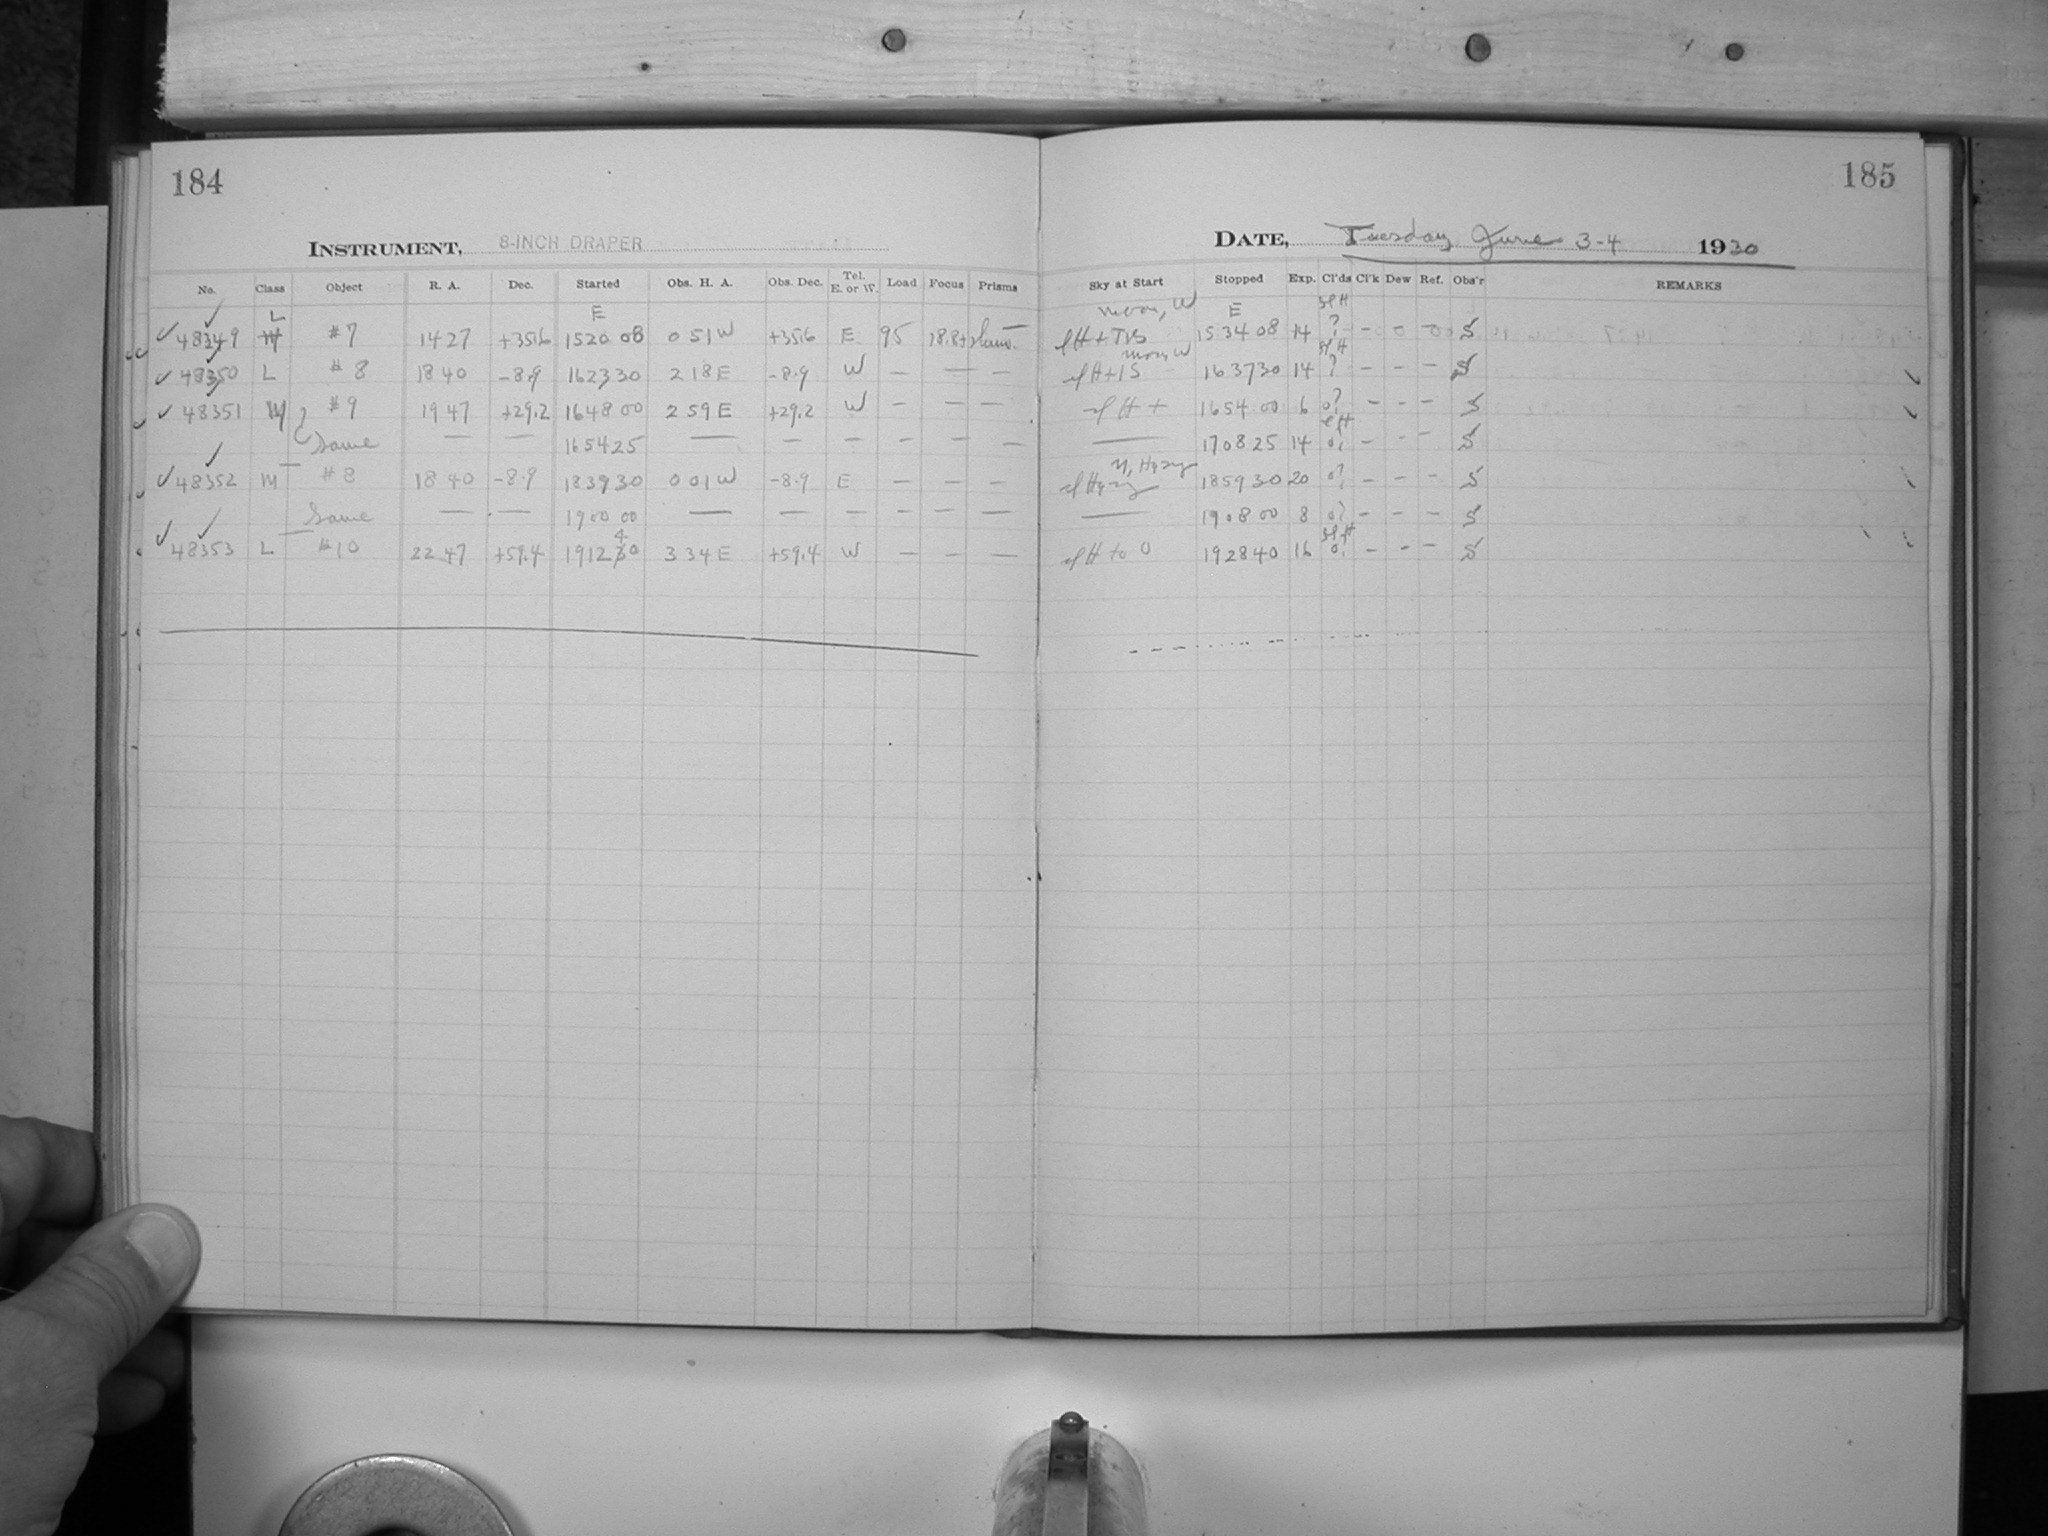 184
INSTRUMENT, 8-INCH DRAPER
No. Class Object R. A. Dec. Started Obs. H. A. Obs. Dec. Tel. E. or W. Load Focus Prisms
L E
48349 #7 14 27 +35.6 15 20 08 0 51 W +35.6 E 95
48350 L #8 18 40 -8.9 16 23 30 2 18 E -8.9 W — — —
48351 M #9 19 47 +29.2 16 48 00 2 59 E +29.2 W — — —
Same — — 16 54 25 — — — — — —
48352 M #8 18 40 -8.9 18 39 30 0 01 W -8.9 E — — —
Same — — 19 00 00 — — — — — —
48353 L #10 22 47 +59.4 19 12 40 3 34 E +59.4 W — — —
185
DATE, Tuesday June 3-4 1930
Sky at Start Stopped Exp. Cl'ds Cl'k Dew Ref. Obs'r REMARKS
moon, W E
15 34 08 14 ? – 0 S
moon, W
16 37 30 14 ? – – – S
16 54 00 6 0? – – – S
— 17 08 25 14 – – – S
18 59 30 20 0? – – – S
— 19 08 00 8 0? – – – S
to 0 19 28 40 16 – – – S